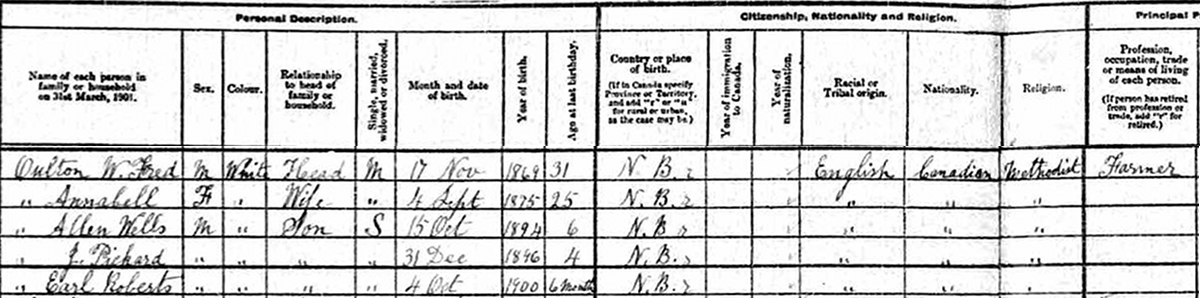 Personal Description. Citizenship, Nationality and Religion. Principal
Name of each person in family or household on 31st March, 1901. Sex. Colour. Relationship to head of family or household. Single, married, widowed or divorced. Month and date of birth. Year of birth. Age at last birthday. Country or place of birth. (If in Canada specify Province or Territory, and add "r" or "u" for rural or urban, as the case may be.) Year of immigration to Canada. Year of naturalization. Racial or Tribal origin. Nationality. Religion. Profession, occupation, trade or means of living of each person. (If person has retired from profession or trade, add "r" for retired.)
Oulton W. Fred M White Head M 17 Nov 1869 31 N. B. r English Canadian Methodist Farmer
" Annabell F " Wife " 4 Sept 1875 25 N. B. r " " "
" Allen Wells M " Son S 15 Oct 1894 6 N. B r " " "
" J. Pickard " " " " 31 Dec 1896 4 N. B. r " " "
" Earl Roberts " " " " 4 Oct 1900 6 month N. B. r " " "